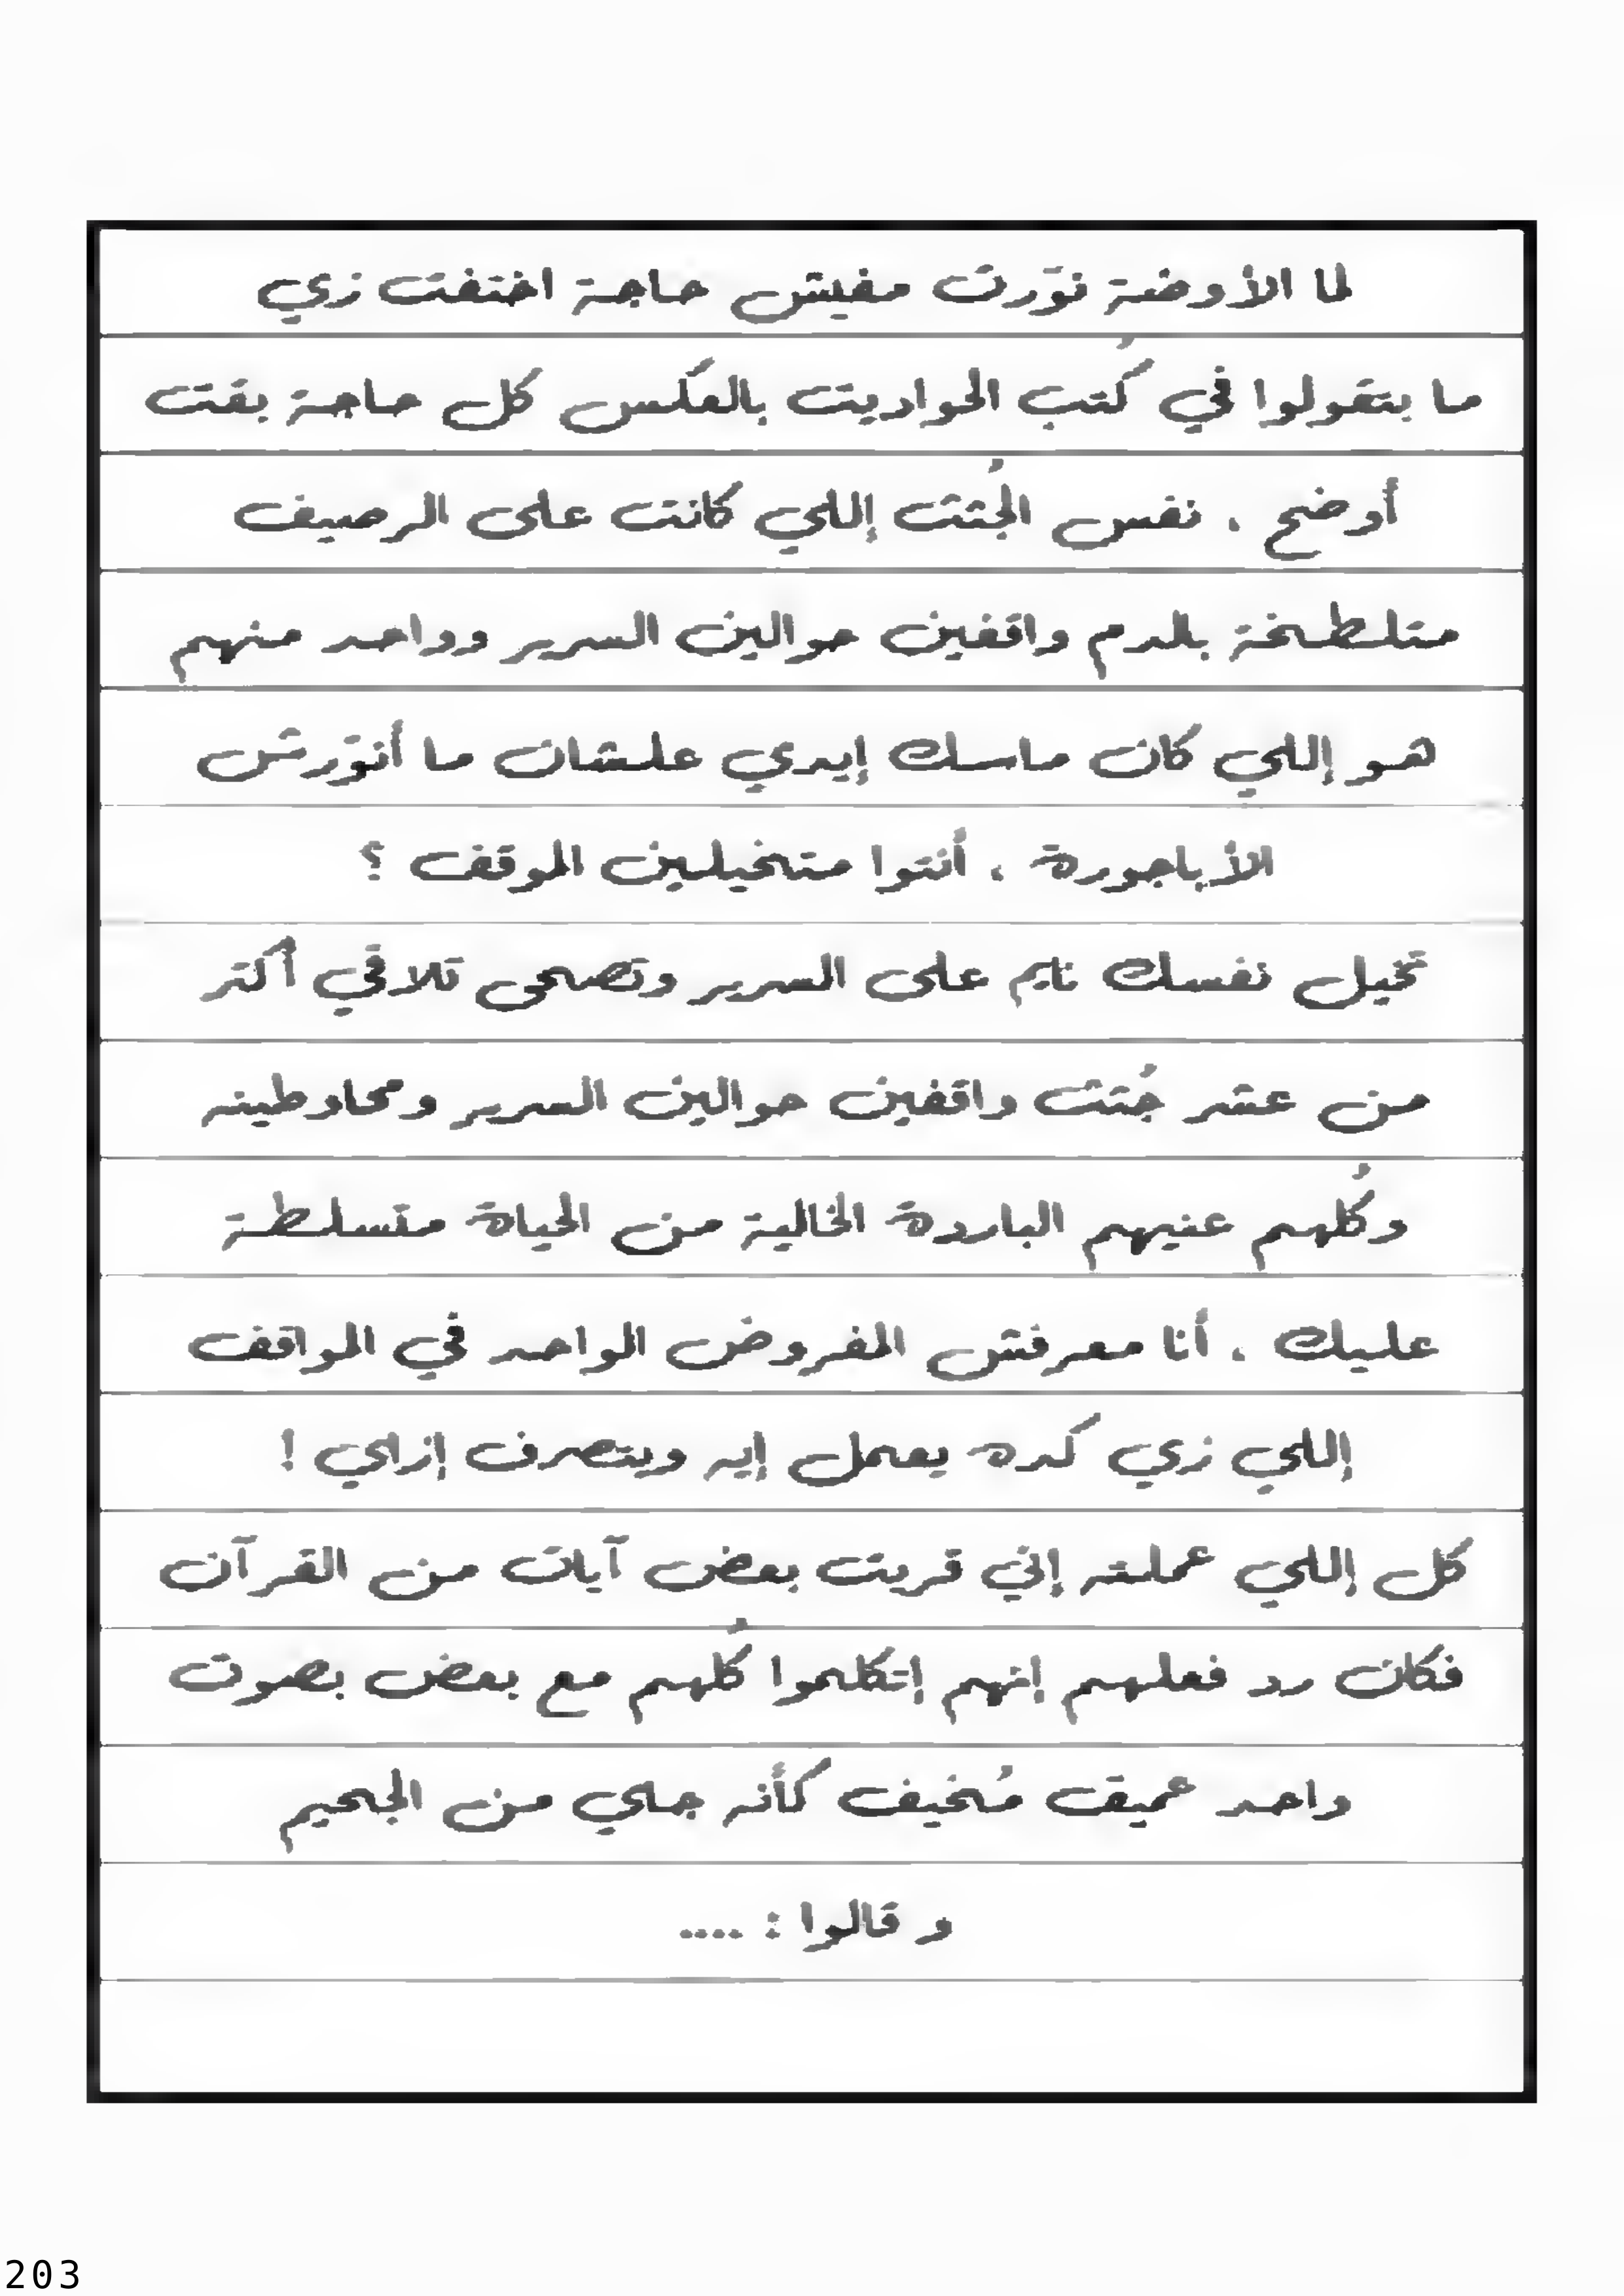 لما الأوضة نوّرت مفيش حاجة اختفت زي
ما بتقولوا في كُتب الحواديت بالعكس كل حاجة بقت
أوضح . نفس الجُثث إللي كانت على الرصيف
متلطخة بالدم واقفين حوالين السرير وواحد منهم
هو إللي كان ماسك إيدي علشان ما أنوّرش
الأباجورة . أنتوا متخيلين الموقف ؟
تخيل نفسك نايم على السرير وتصحى تلاقي أكتر
من عشر جُثث واقفين حوالين السرير ومحاوطينه
وكُلهم عنيهم الباردة الخالية من الحياة متسلطة
عليك . أنا معرفش المفروض الواحد في المواقف
إللي زي كده يعمل إيه ويتصرف إزاي !
كل إللي عملته إني قريت بعض آيات من القرآن
فكان رد فعلهم إنهم إتكلموا كُلهم مع بعض بصوت
واحد عميق مُخيف كأنه جاي من الجحيم
و قالوا : ....
203